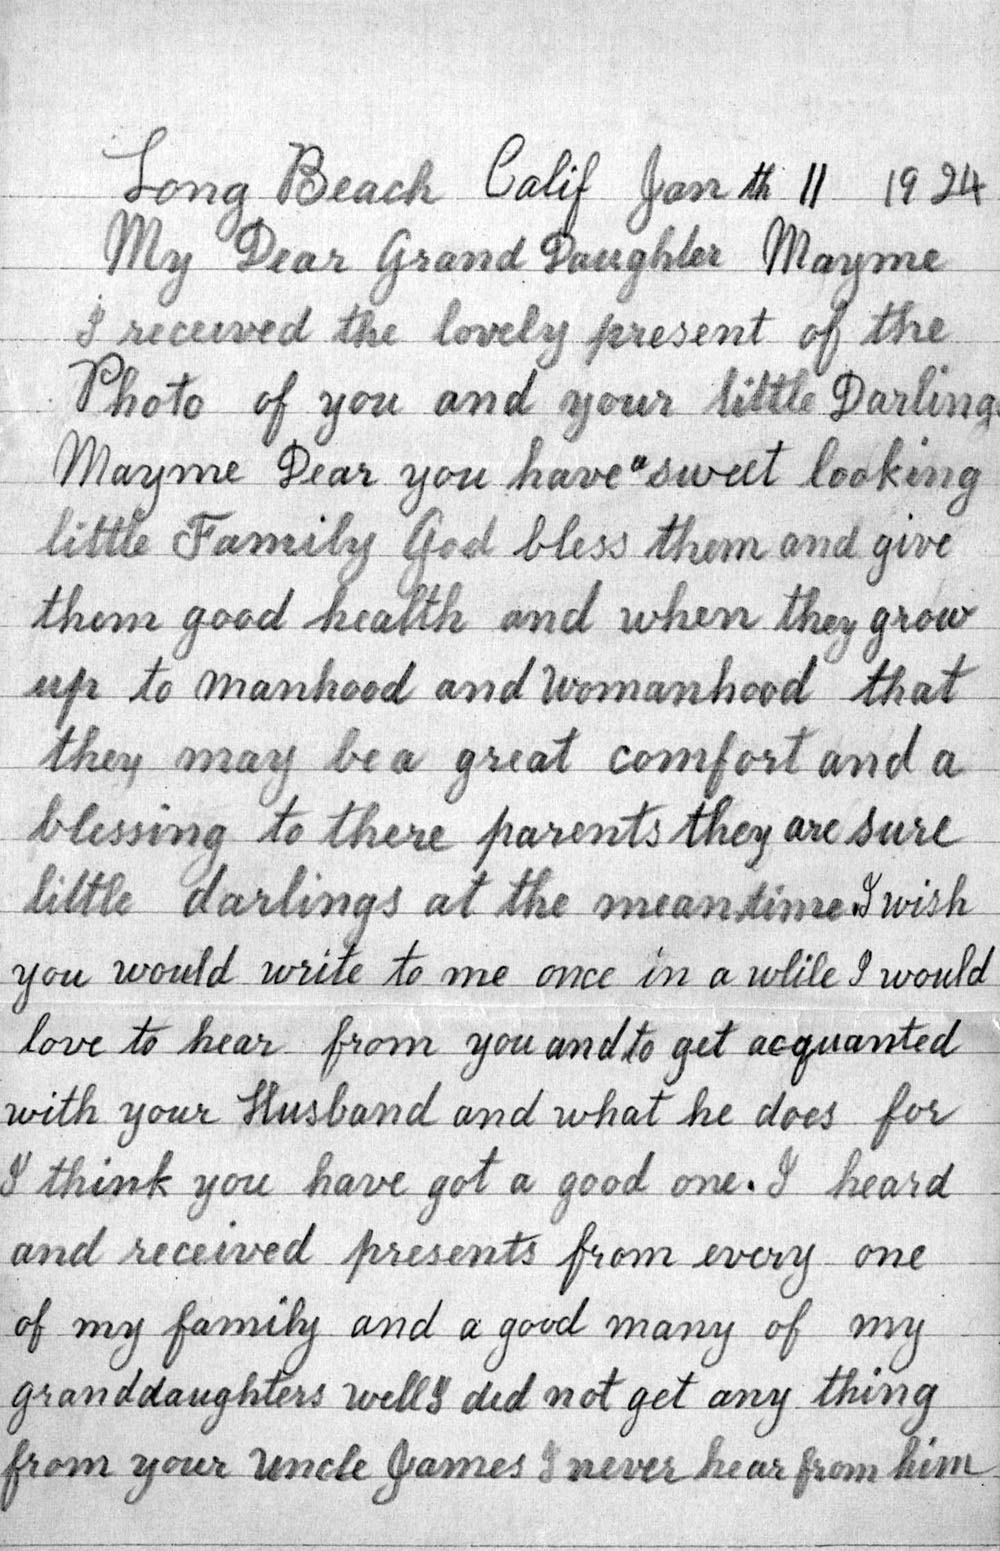 Long Beach Calif Jan th 11 1924
My Dear Grand Daughter Mayme
I received the lovely present of the
Photo of you and your little Darlings
Mayme Dear you have a sweet looking
little Family God bless them and give
them good health and when they grow
up to manhood and Womanhood that
they may be a great comfort and a
blessing to there parents they are sure
little darlings at the meantime. I wish
you would write to me once in a wlile I would
love to hear from you and to get acquanted
with your Husband and what he does for
I think you have got a good one. I heard
and received presents from every one
of my family and a good many of my
granddaughters well I did not get any thing
from your Uncle James I never hear from him